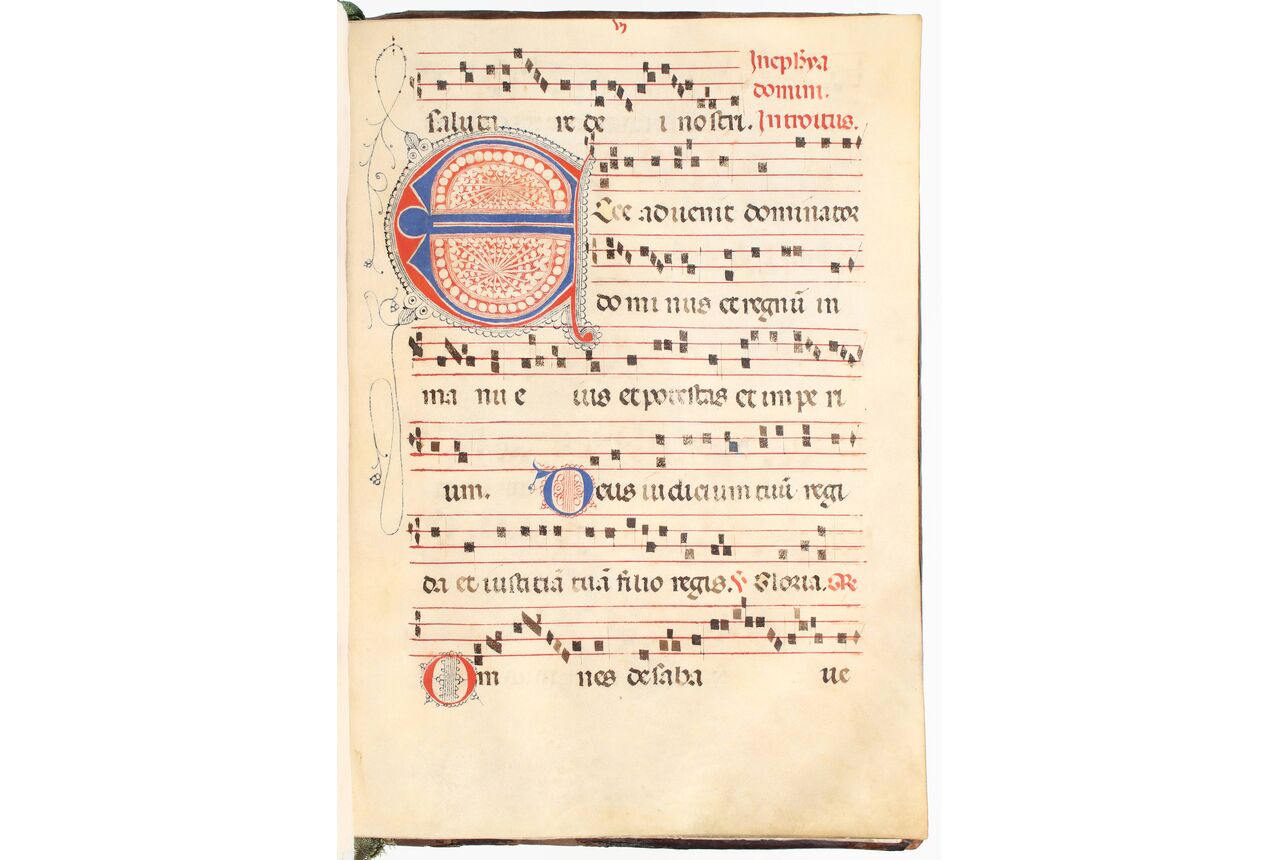 In ephya
domini.
saluta re de i nostri. Introitus.
Ecce aduenit dominator
do mi nus et regnū in
ma nu e ius et potestas et im pe ri
um. Deus iudicium tuū regi
da et iustitiā tuā filio regis. V Gloria. GR
Om nes de saba ue